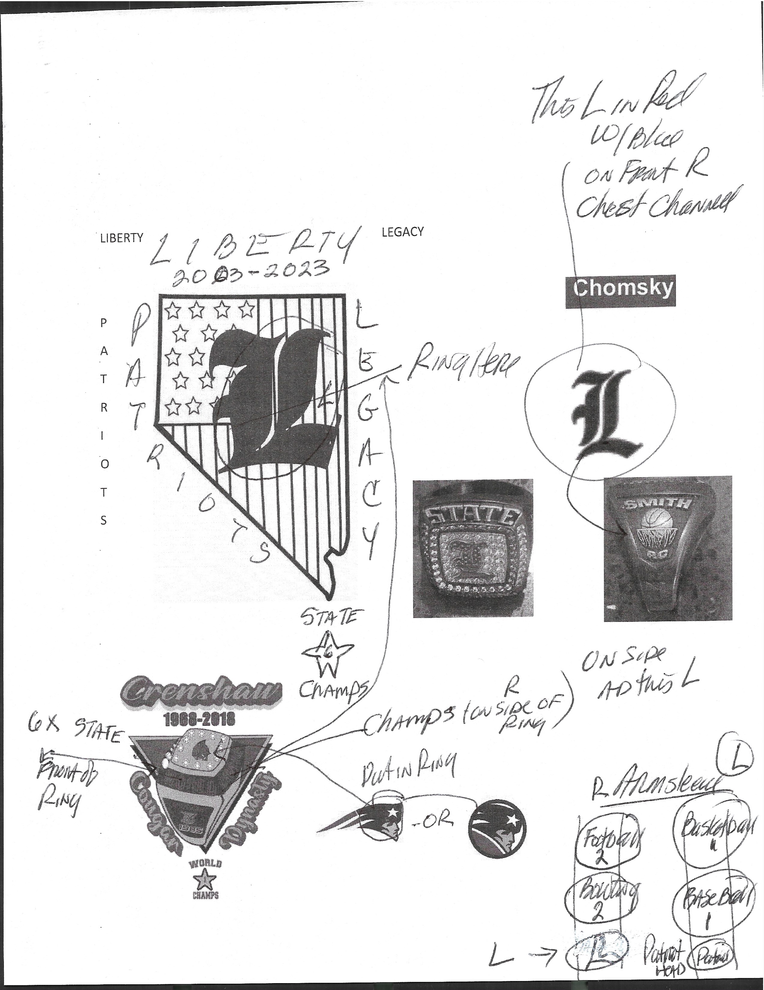 This L in Red
W/Blue
ON Front R
Chest Channel
LIBERTY
LIBERTY
LEGACY
2003-2023
Chomsky
PATRIOTS
PATRIOTS
LEGACY
L
Ring Here
L
STATE
L
SMITH
RC
STATE
6
CHAMPS
ON Side
AD this L
Crenshaw
1968-2018
Cougar
Dynasty
1985
WORLD
CHAMPS
6X STATE
Front of
Ring
CHAMPS (ON SIDE OF
R
RING)
Put in Ring
-OR
R Armsleeve
L
Football
2
Basketball
Bowling
2
BASEBALL
1
L →
L
Patriot
HEAD